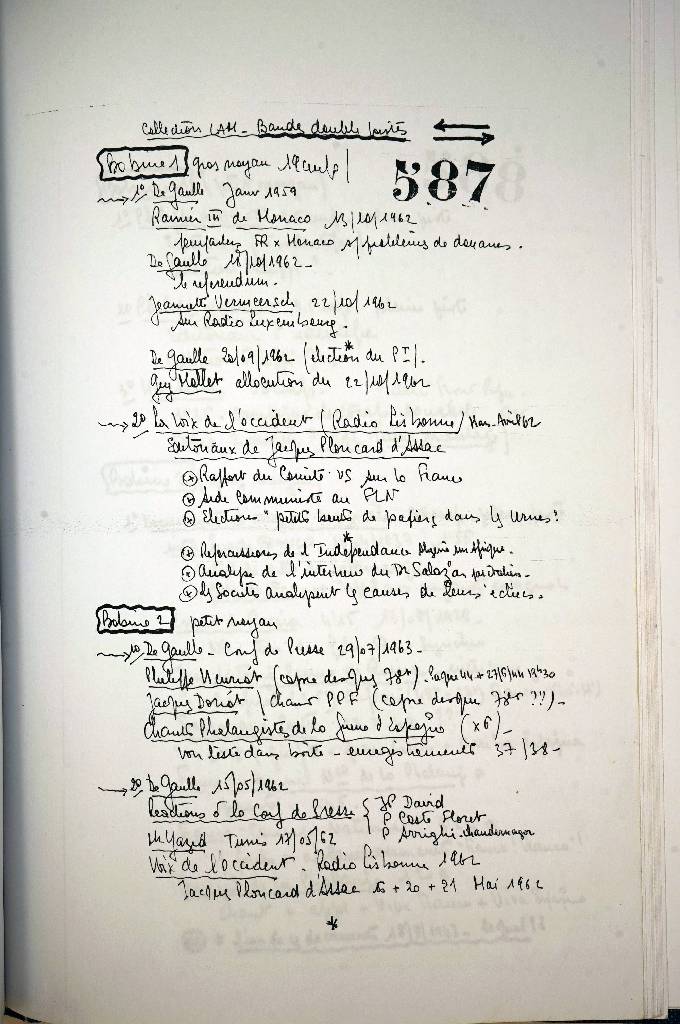 Collection LAM - Bandes double pistes
587
Bobine 1 gros noyau
1° De Gaulle Janv 1959
Rainier III de Monaco 13/10/1962
FR x Monaco s/ problèmes de douanes.
De Gaulle 18/10/1962 -
le referendum.
Jeannette Vermeersch 22/10/1962
sur Radio Luxembourg.
De Gaulle 20/09/1962 (élection du PI).
Guy Mollet allocution du 22/10/1962
2° La Voix de l'occident (Radio Lisbonne) Mars-Avril 62
Editoriaux de Jacques Ploncard d'Assac
Rapport du Comité US sur la France
Aide communiste au FLN
Elections "petits bouts de papiers dans les urnes"
Repercussions de l'Indépendance Algerie en Afrique.
Analyse de l'interview du Dr Salazar
Les Societés analysent les causes de leurs echecs.
Bobine 2 petit noyau
1° De Gaulle - Conf de Presse 29/07/1963 -
Philippe Henriot (copie disque 78t) 27/6/44 12h30
Jacques Doriot / chant PPF (copie disque 78t ??) -
Chants Phalangistes de la Guerre d'Espagne (x6) -
voir texte dans boite - enregistrements 37/38 -
2° De Gaulle 15/05/1962
Réactions à la Conf de Presse { JP David
P Coste Floret
P Arrighi chandernagor
M Yazid Tunis 17/05/62
Voix de l'occident. Radio Lisbonne 1962
Jacques Ploncard d'Assac 15 + 20 + 21 Mai 1962
*